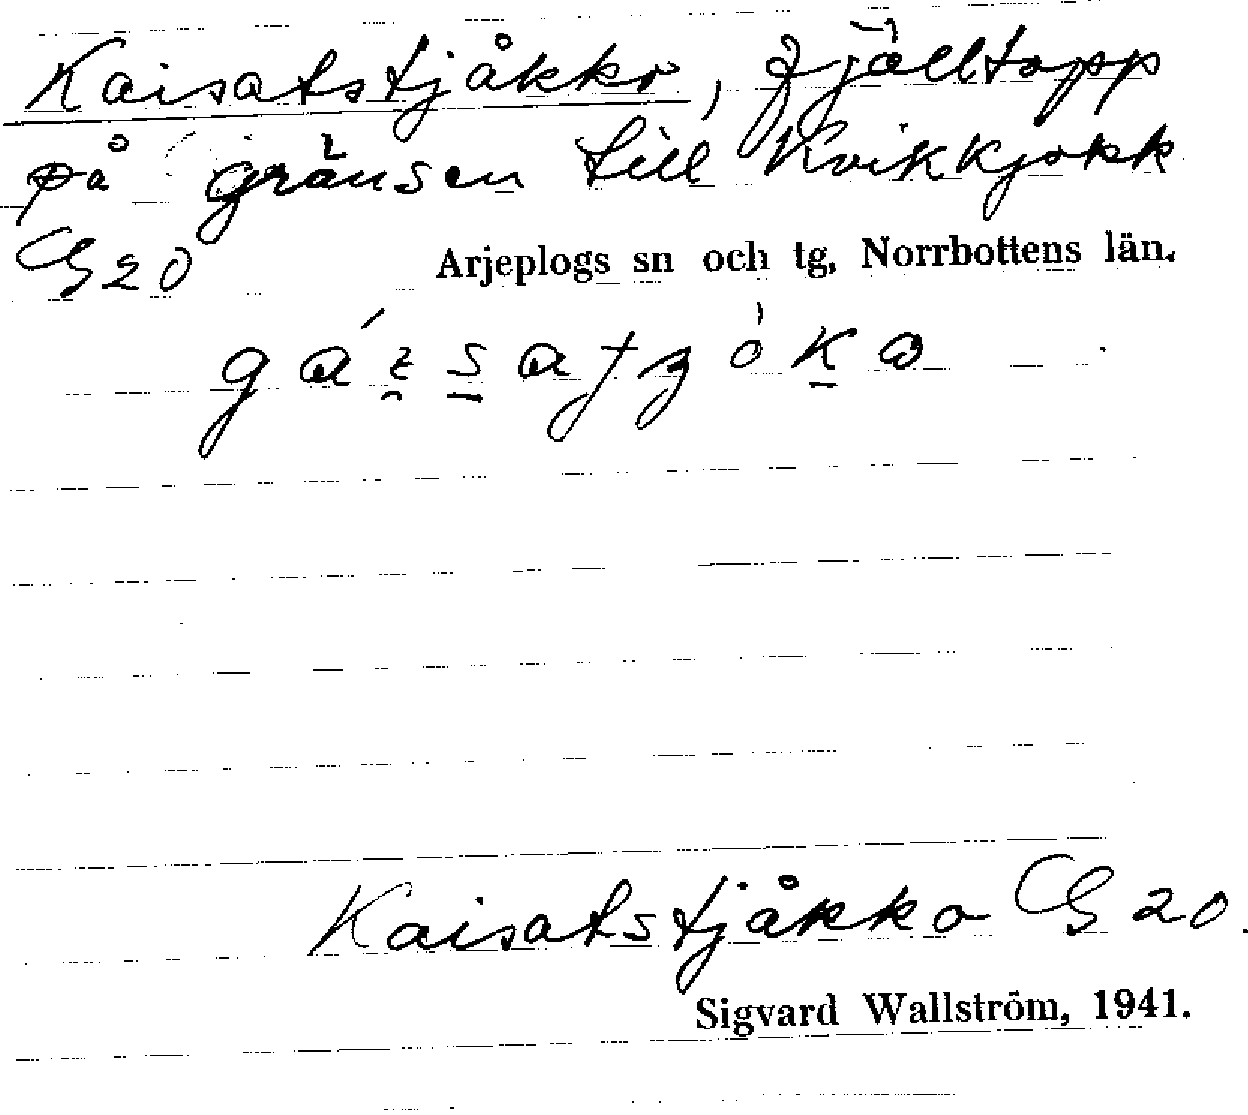 Kaisatstjåkko, fjälltopp
på gränsen till Kvikkjokk
G20
Arjeplogs sn och tg, Norrbottens län.
Kaisatstjåkko G20.
Sigvard Wallström, 1941.